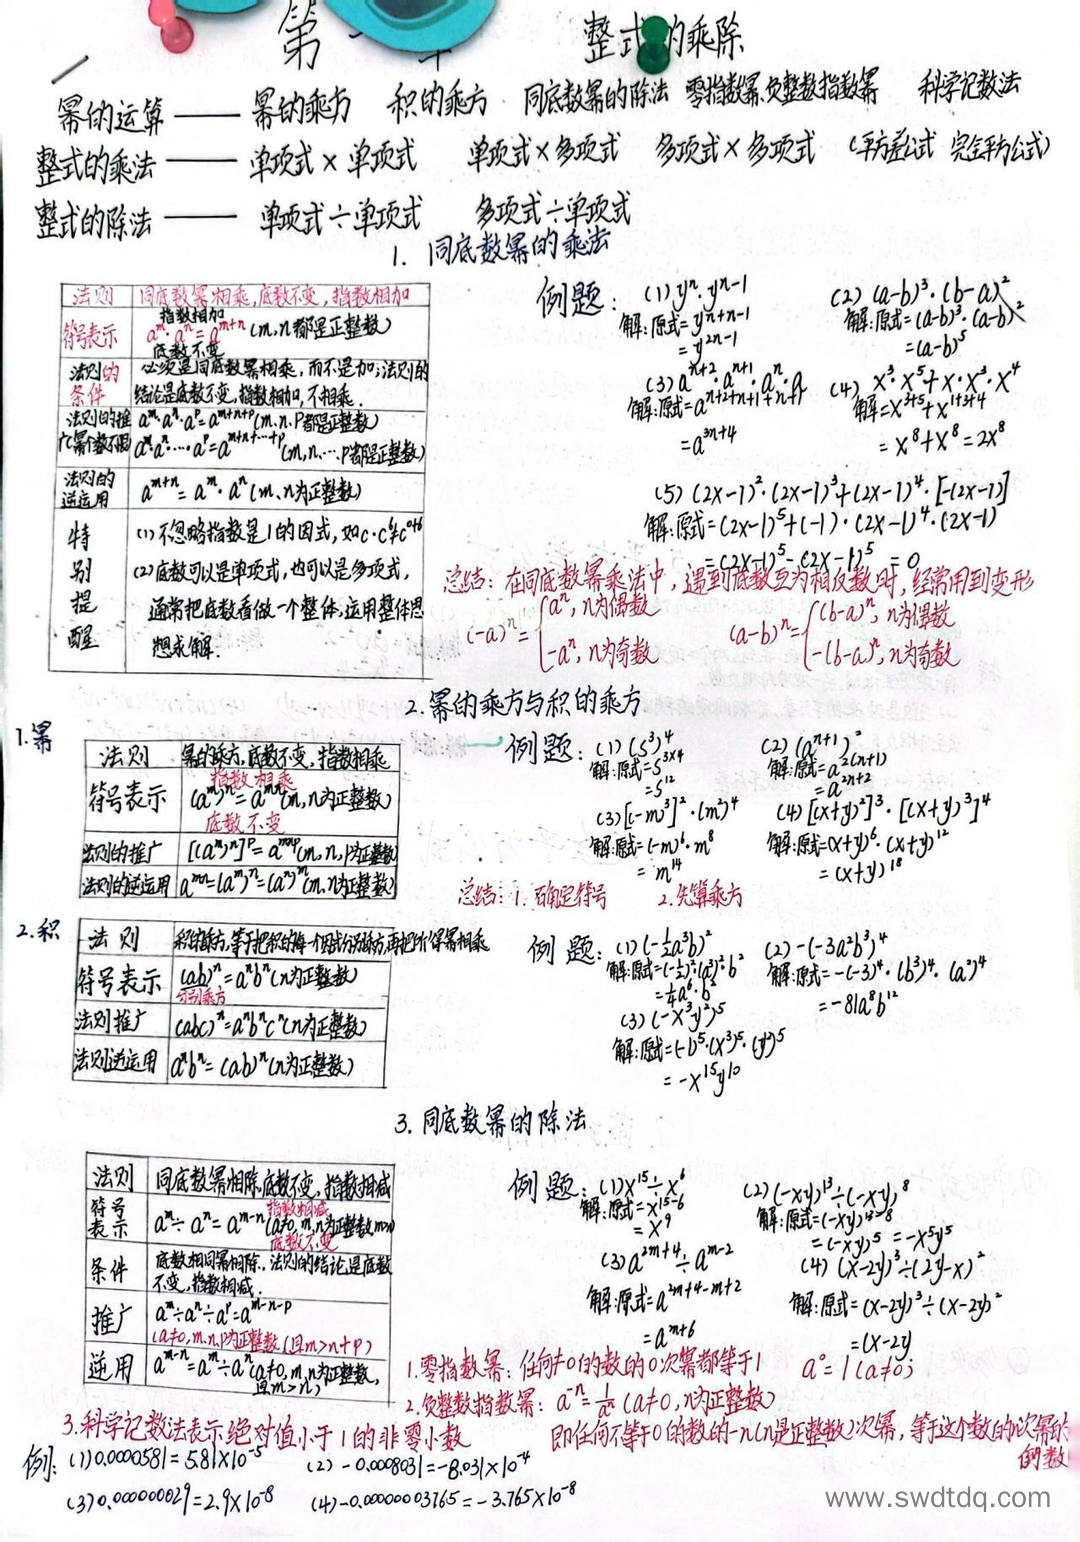 第一章 整式的乘除
幂的运算 —— 幂的乘方 积的乘方 同底数幂的除法 零指数幂、负整数指数幂 科学记数法
整式的乘法 —— 单项式×单项式 单项式×多项式 多项式×多项式 (平方差公式 完全平方公式)
整式的除法 —— 单项式÷单项式 多项式÷单项式
1. 同底数幂的乘法
法则 同底数幂相乘,底数不变,指数相加
符号表示 指数相加
aᵐ·aⁿ=aᵐ⁺ⁿ(m,n都是正整数)
底数不变
法则的条件 必须是同底数幂相乘,而不是加;法则的
结论是底数不变,指数相加,不相乘.
法则的推广幂个数不限 aᵐ·aⁿ·aᵖ=aᵐ⁺ⁿ⁺ᵖ(m、n、p都是正整数)
aᵐ·aⁿ·…·aᵖ=aᵐ⁺ⁿ⁺…⁺ᵖ(m,n,…p都是正整数)
法则的逆运用 aᵐ⁺ⁿ=aᵐ·aⁿ(m、n为正整数)
特别提醒 (1)不忽略指数是1的因式,如c·c⁶≠c⁰⁺⁶
(2)底数可以是单项式,也可以是多项式,
通常把底数看做一个整体,运用整体思
想求解.
例题: (1) yⁿ·yⁿ-1
解:原式=yⁿ⁺ⁿ⁻¹
=y²ⁿ⁻¹
(2) (a-b)³·(b-a)²
解:原式=(a-b)³·(a-b)²
=(a-b)⁵
(3) aⁿ⁺²·aⁿ⁺¹·aⁿ·a
解:原式=aⁿ⁺²⁺ⁿ⁺¹⁺ⁿ⁺¹
=a³ⁿ⁺⁴
(4) x³·x⁵+x·x³·x⁴
解=x³⁺⁵+x¹⁺³⁺⁴
=x⁸+x⁸=2x⁸
(5) (2x-1)²·(2x-1)³+(2x-1)⁴·[-(2x-1)]
解:原式=(2x-1)⁵+(-1)·(2x-1)⁴·(2x-1)
=(2x-1)⁵-(2x-1)⁵ =0
总结: 在同底数幂乘法中,遇到底数互为相反数时,经常用到变形
(-a)ⁿ={aⁿ,n为偶数
-aⁿ,n为奇数
(a-b)ⁿ={(b-a)ⁿ,n为偶数
-(b-a)ⁿ,n为奇数
2.幂的乘方与积的乘方
1.幂
法则 幂的乘方,底数不变,指数相乘
符号表示 指数相乘
(aᵐ)ⁿ=aᵐⁿ(m,n为正整数)
底数不变
法则的推广 [(aᵐ)ⁿ]ᵖ=aᵐⁿᵖ(m,n,p为正整数)
法则的逆运用 aᵐⁿ=(aᵐ)ⁿ=(aⁿ)ᵐ(m,n为正整数)
例题: (1) (5³)⁴
解:原式=5³ˣ⁴
=5¹²
(2) (aⁿ⁺¹)²
解:原式=a²⁽ⁿ⁺¹⁾
=a²ⁿ⁺²
(3) [(-m)³]²·(m²)⁴
解:原式=(-m)⁶·m⁸
=m¹⁴
(4) [(x+y)²]³·[(x+y)³]⁴
解:原式=(x+y)⁶·(x+y)¹²
=(x+y)¹⁸
总结: 1. 确定符号 2.先算乘方
2.积
法则 积的乘方,等于把积的每一个因式分别乘方,再把所得幂相乘
符号表示 (ab)ⁿ=aⁿbⁿ(n为正整数)
分别乘方
法则推广 (abc)ⁿ=aⁿbⁿcⁿ(n为正整数)
法则逆运用 aⁿbⁿ=(ab)ⁿ(n为正整数)
例题: (1) (-½a³b)²
解:原式=(-½)²·(a³)²·b²
=¼a⁶·b²
(2) -(-3a²b³)⁴
解:原式=-(-3)⁴·(b³)⁴·(a²)⁴
=-81a⁸b¹²
(3) (-x³y²)⁵
解:原式=(-1)⁵·(x³)⁵·(y²)⁵
=-x¹⁵y¹⁰
3.同底数幂的除法
法则 同底数幂相除,底数不变,指数相减
符号表示 指数相减
aᵐ÷aⁿ=aᵐ⁻ⁿ(a≠0,m,n为正整数m>n)
底数不变
条件 底数相同幂相除,法则的结论是底数
不变,指数相减.
推广 aᵐ÷aⁿ÷aᵖ=aᵐ⁻ⁿ⁻ᵖ
(a≠0,m,n,p为正整数(且m>n+p)
逆用 aᵐ⁻ⁿ=aᵐ÷aⁿ(a≠0,m,n为正整数,
且m>n)
例题: (1) x¹⁵÷x⁶
解:原式=x¹⁵⁻⁶
=x⁹
(2) (-xy)¹³÷(-xy)⁸
解:原式=(-xy)¹³⁻⁸
=(-xy)⁵ =-x⁵y⁵
(3) a²ᵐ⁺⁴÷aᵐ⁻²
解:原式=a²ᵐ⁺⁴⁻ᵐ⁺²
=aᵐ⁺⁶
(4) (x-2y)³÷(2y-x)²
解:原式=(x-2y)³÷(x-2y)²
=(x-2y
1.零指数幂: 任何≠0的数的0次幂都等于1 a⁰=1(a≠0;
2.负整数指数幂: a⁻ⁿ=1/aⁿ(a≠0,n为正整数)
即任何不等于0的数的-n(n是正整数)次幂,等于这个数的n次幂的
倒数
3.科学记数法表示绝对值小于1的非零小数
例: (1)0.0000581=5.81×10⁻⁵ (2) -0.0008031=-8.031×10⁻⁴
(3)0.000000029=2.9×10⁻⁸ (4)-0.00000003765=-3.765×10⁻⁸
www.swdtdq.com